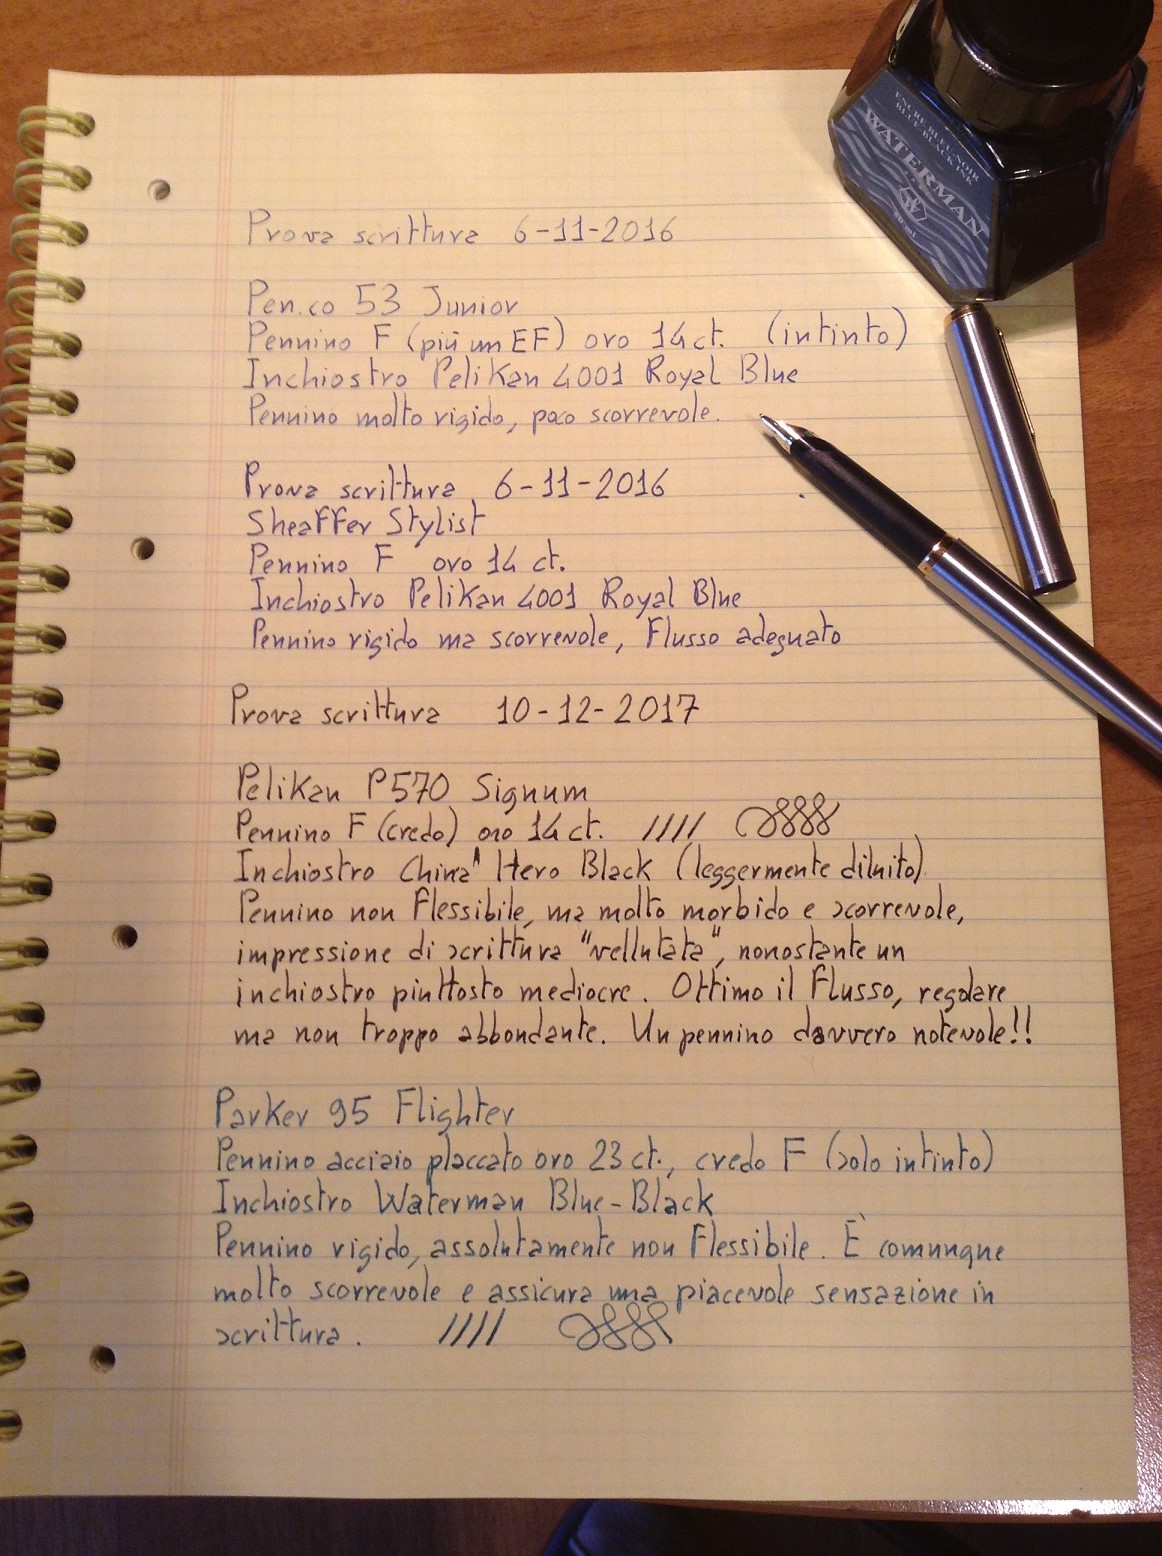 ENCRE BLEU-NOIR
BLUE-BLACK INK
WATERMAN
W
50 ml
Prova scrittura 6-11-2016
Pen.co 53 Junior
Pennino F (più un EF) oro 14 ct. (intinto)
Inchiostro Pelikan 4001 Royal Blue
Pennino molto rigido, poco scorrevole.
Prova scrittura 6-11-2016
Sheaffer Stylist
Pennino F oro 14 ct.
Inchiostro Pelikan 4001 Royal Blue
Pennino rigido ma scorrevole, flusso adeguato
Prova scrittura 10-12-2017
Pelikan P570 Signum
Pennino F (credo) oro 14 ct. ////
Inchiostro China Hero Black (leggermente diluito)
Pennino non flessibile, ma molto morbido e scorrevole,
impressione di scrittura "vellutata", nonostante un
inchiostro piuttosto mediocre. Ottimo il flusso, regolare
ma non troppo abbondante. Un pennino davvero notevole!!
Parker 95 Flighter
Pennino acciaio placcato oro 23 ct., credo F (solo intinto)
Inchiostro Waterman Blue-Black
Pennino rigido, assolutamente non flessibile. È comunque
molto scorrevole e assicura una piacevole sensazione in
scrittura. ////